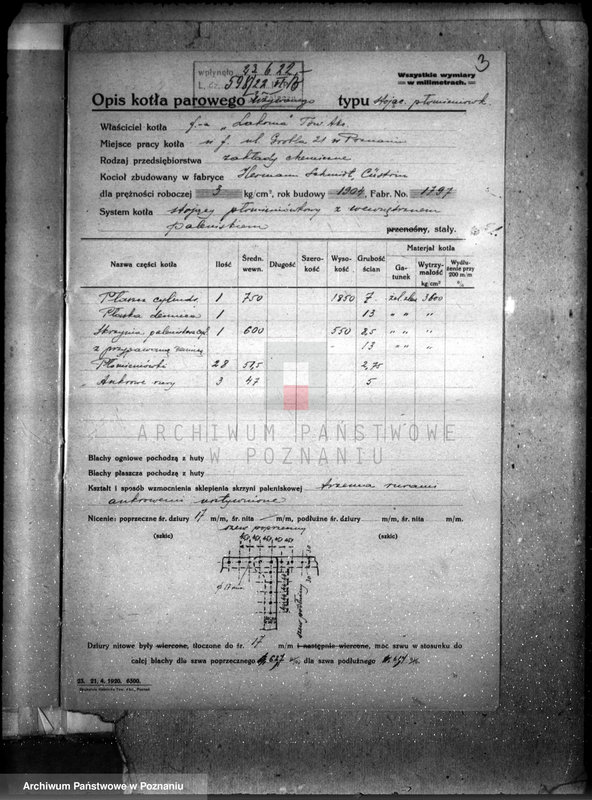 3
wpłynęło 23.6.22
L. dz. 598/22
Wszystkie wymiary
w milimetrach.
Opis kotła parowego typu stojąc. płomieniówk.
Właściciel kotła f-a „Lakoma" Tow. Akc.
Miejsce pracy kotła w f. ul. Grobla 21 w Poznaniu
Rodzaj przedsiębiorstwa zakłady chemiczne
Kocioł zbudowany w fabryce Herman Schmidt, Cüstrin
dla prężności roboczej 3 kg/cm², rok budowy 1904, Fabr. No. 1797
System kotła stojący płomieniówkowy z wewnętrznem
paleniskiem przenośny, stały.
Nazwa części kotła Ilość Średn. wewn. Długość Szerokość Wysokość Grubość ścian Materjał kotła
Gatunek Wytrzymałość kg/cm² Wydłużenie przy 200 m/m %
Płaszcz cylindr. 1 750 1850 7 3600
Płaska dennica 1 13 " " "
Skrzynia paleniskowa cyl. 1 600 550 25 " " "
z przyspawaną dennicą 13 " "
Płomieniówki 28 51,5 2,75
Ankrowe rury 3 47 5
ARCHIWUM PAŃSTWOWE
W POZNANIU
Blachy ogniowe pochodzą z huty
Blachy płaszcza pochodzą z huty
Kształt i sposób wzmocnienia sklepienia skrzyni paleniskowej trzema rurami
ankrowemi usztywnione
Nicenie: poprzeczne śr. dziury 17 m/m, śr. nita m/m, podłużne śr. dziury m/m, śr. nita m/m.
(szkic) szew poprzeczny (szkic)
40 40 40 40 40
szew podłużny
Dziury nitowe były wiercone, tłoczone do śr. 17 m/m i następnie wiercone, moc szwu w stosunku do
całej blachy dla szwa poprzecznego %, dla szwa podłużnego %
23. 21. 4. 1920. 6500.
Archiwum Państwowe w Poznaniu